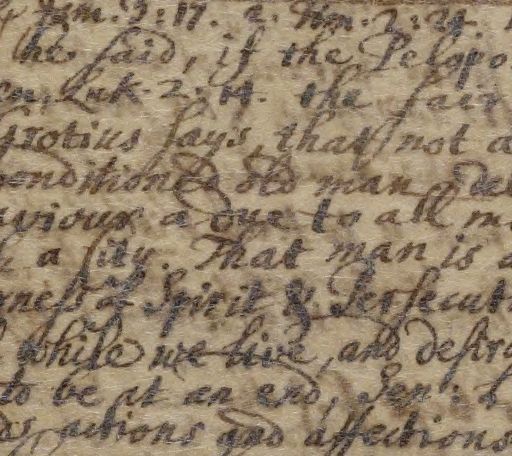 Jam. 3: 17. 2. Tim. 2: 24.
he said, if the Pelopo
Luk. 2: 14. the fair
Grotius says, that not a
onditioned old man
aviour a due to all m
a sity. That man is a
ness of Spirit & Persecut
while we live, and desir
to be at an end, Gen:
actions and affections